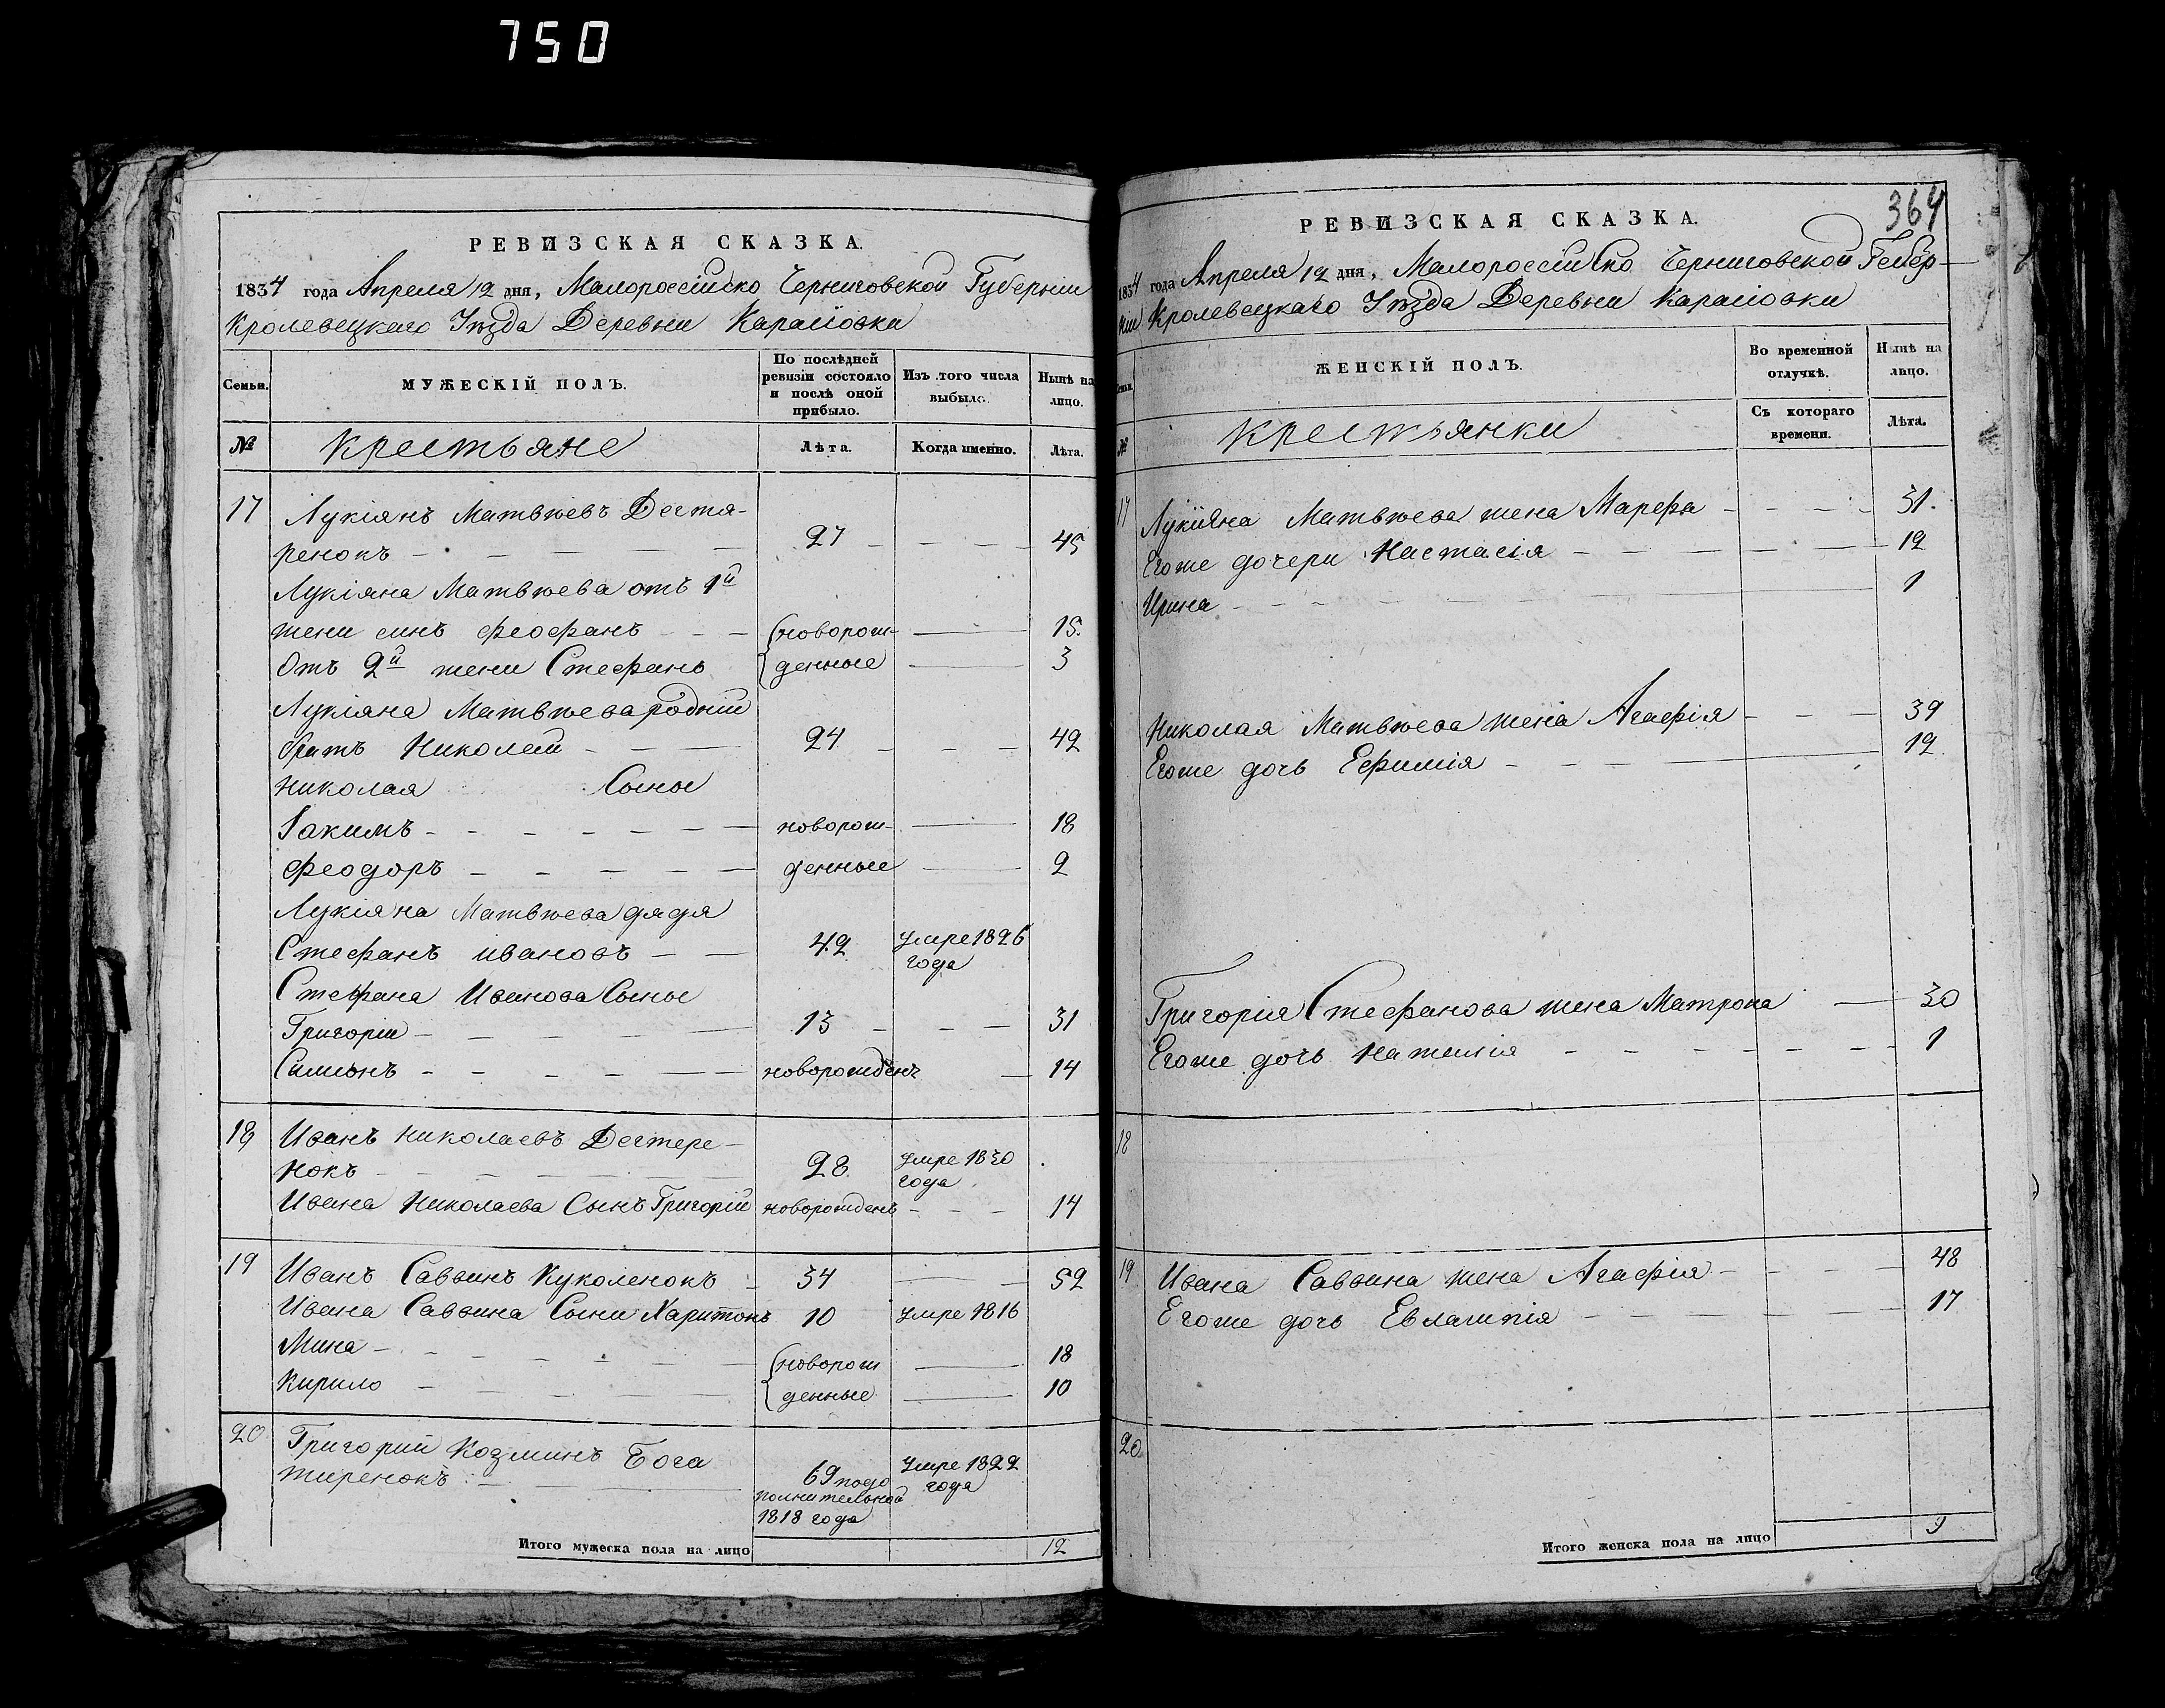 750
РЕВИЗСКАЯ СКАЗКА.
1834 года Апреля 12 дня, Малороссійско Черниговской Губерніи
Кролевецкаго Уѣзда Деревни
Семьи.
МУЖЕСКІЙ ПОЛЪ.
По послѣдней ревизіи состояло и послѣ оной прибыло.
Изъ того числа выбыло.
Нынѣ на лицо.
№
Крестьяне
Лѣта.
Когда именно.
Лѣта.
17 Лукіянъ Матвѣевъ Дегтя-
ренокъ 27 45
Лукіяна Матвѣева отъ 1й
жени синъ Феофанъ новорож- 15.
Отъ 2й жени Стефанъ денные 3
Лукіяна Матвѣева родній
братъ Николай 24 42
Николая Сыны
Іакимъ новорож- 18
Феодоръ денные 2
Лукіяна Матвѣева дядя
Стефанъ Ивановъ 42 умре 1826
года
Стефана Иванова Сыны
Григоріи 13 31
Симионъ новорожденъ 14
18 Иванъ Николаевъ Дегтере-
нокъ 28. умре 1830
года
Ивана Николаева Сынъ Григорій новорожденъ 14
19 Иванъ Саввинъ Куколенокъ 34 52
Ивана Саввина Сыни Харитонъ 10 умре 1816
Мина новорож 18
Кирило денные 10
20 Григорий Козминъ Бога
тиренокъ 69 подо умре 1822
полнительной года
1818 года
Итого мужеска пола на лицо 12
364
РЕВИЗСКАЯ СКАЗКА.
1834 года Апреля 12 дня, Малороссійско Черниговской Губер-
ніи Кролевецкаго Уѣзда Деревни
Семьи.
ЖЕНСКІЙ ПОЛЪ.
Во временной отлучкѣ.
Нынѣ на лицо.
№
Крестьянки
Съ котораго времени.
Лѣта.
17 Лукіяна Матвѣева жена Марефа 31.
Егоже дочери Настасія 12
Ирина 1
Николая Матвѣева жена Агафія 39
Егоже дочь Ефимія 12
Григорія Стефанова жена Матрона 30
Егоже дочь 1
18
19 Ивана Саввина жена Агафія 48
Егоже дочь Евлампія 17
20
Итого женска пола на лицо 9